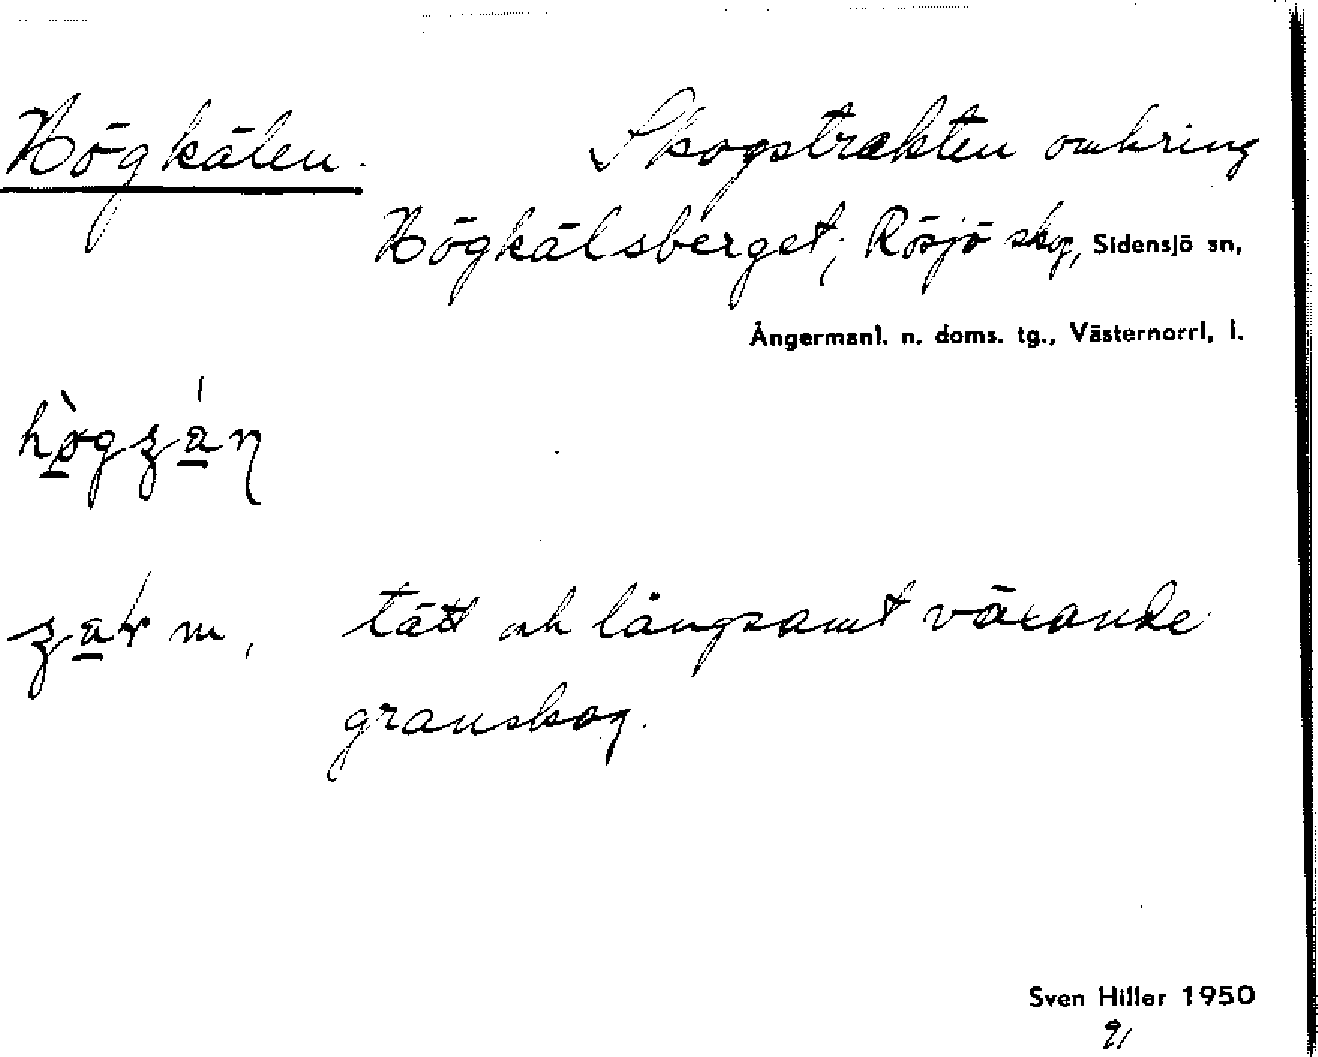 Högkälen. Skogstrakten omkring
Högkälsberget; Rösjö skog, Sidensjö sn,
Ångermanl. n. doms. tg., Västernorrl, l.
tätt och långsamt växande
granskog.
Sven Hiller 1950